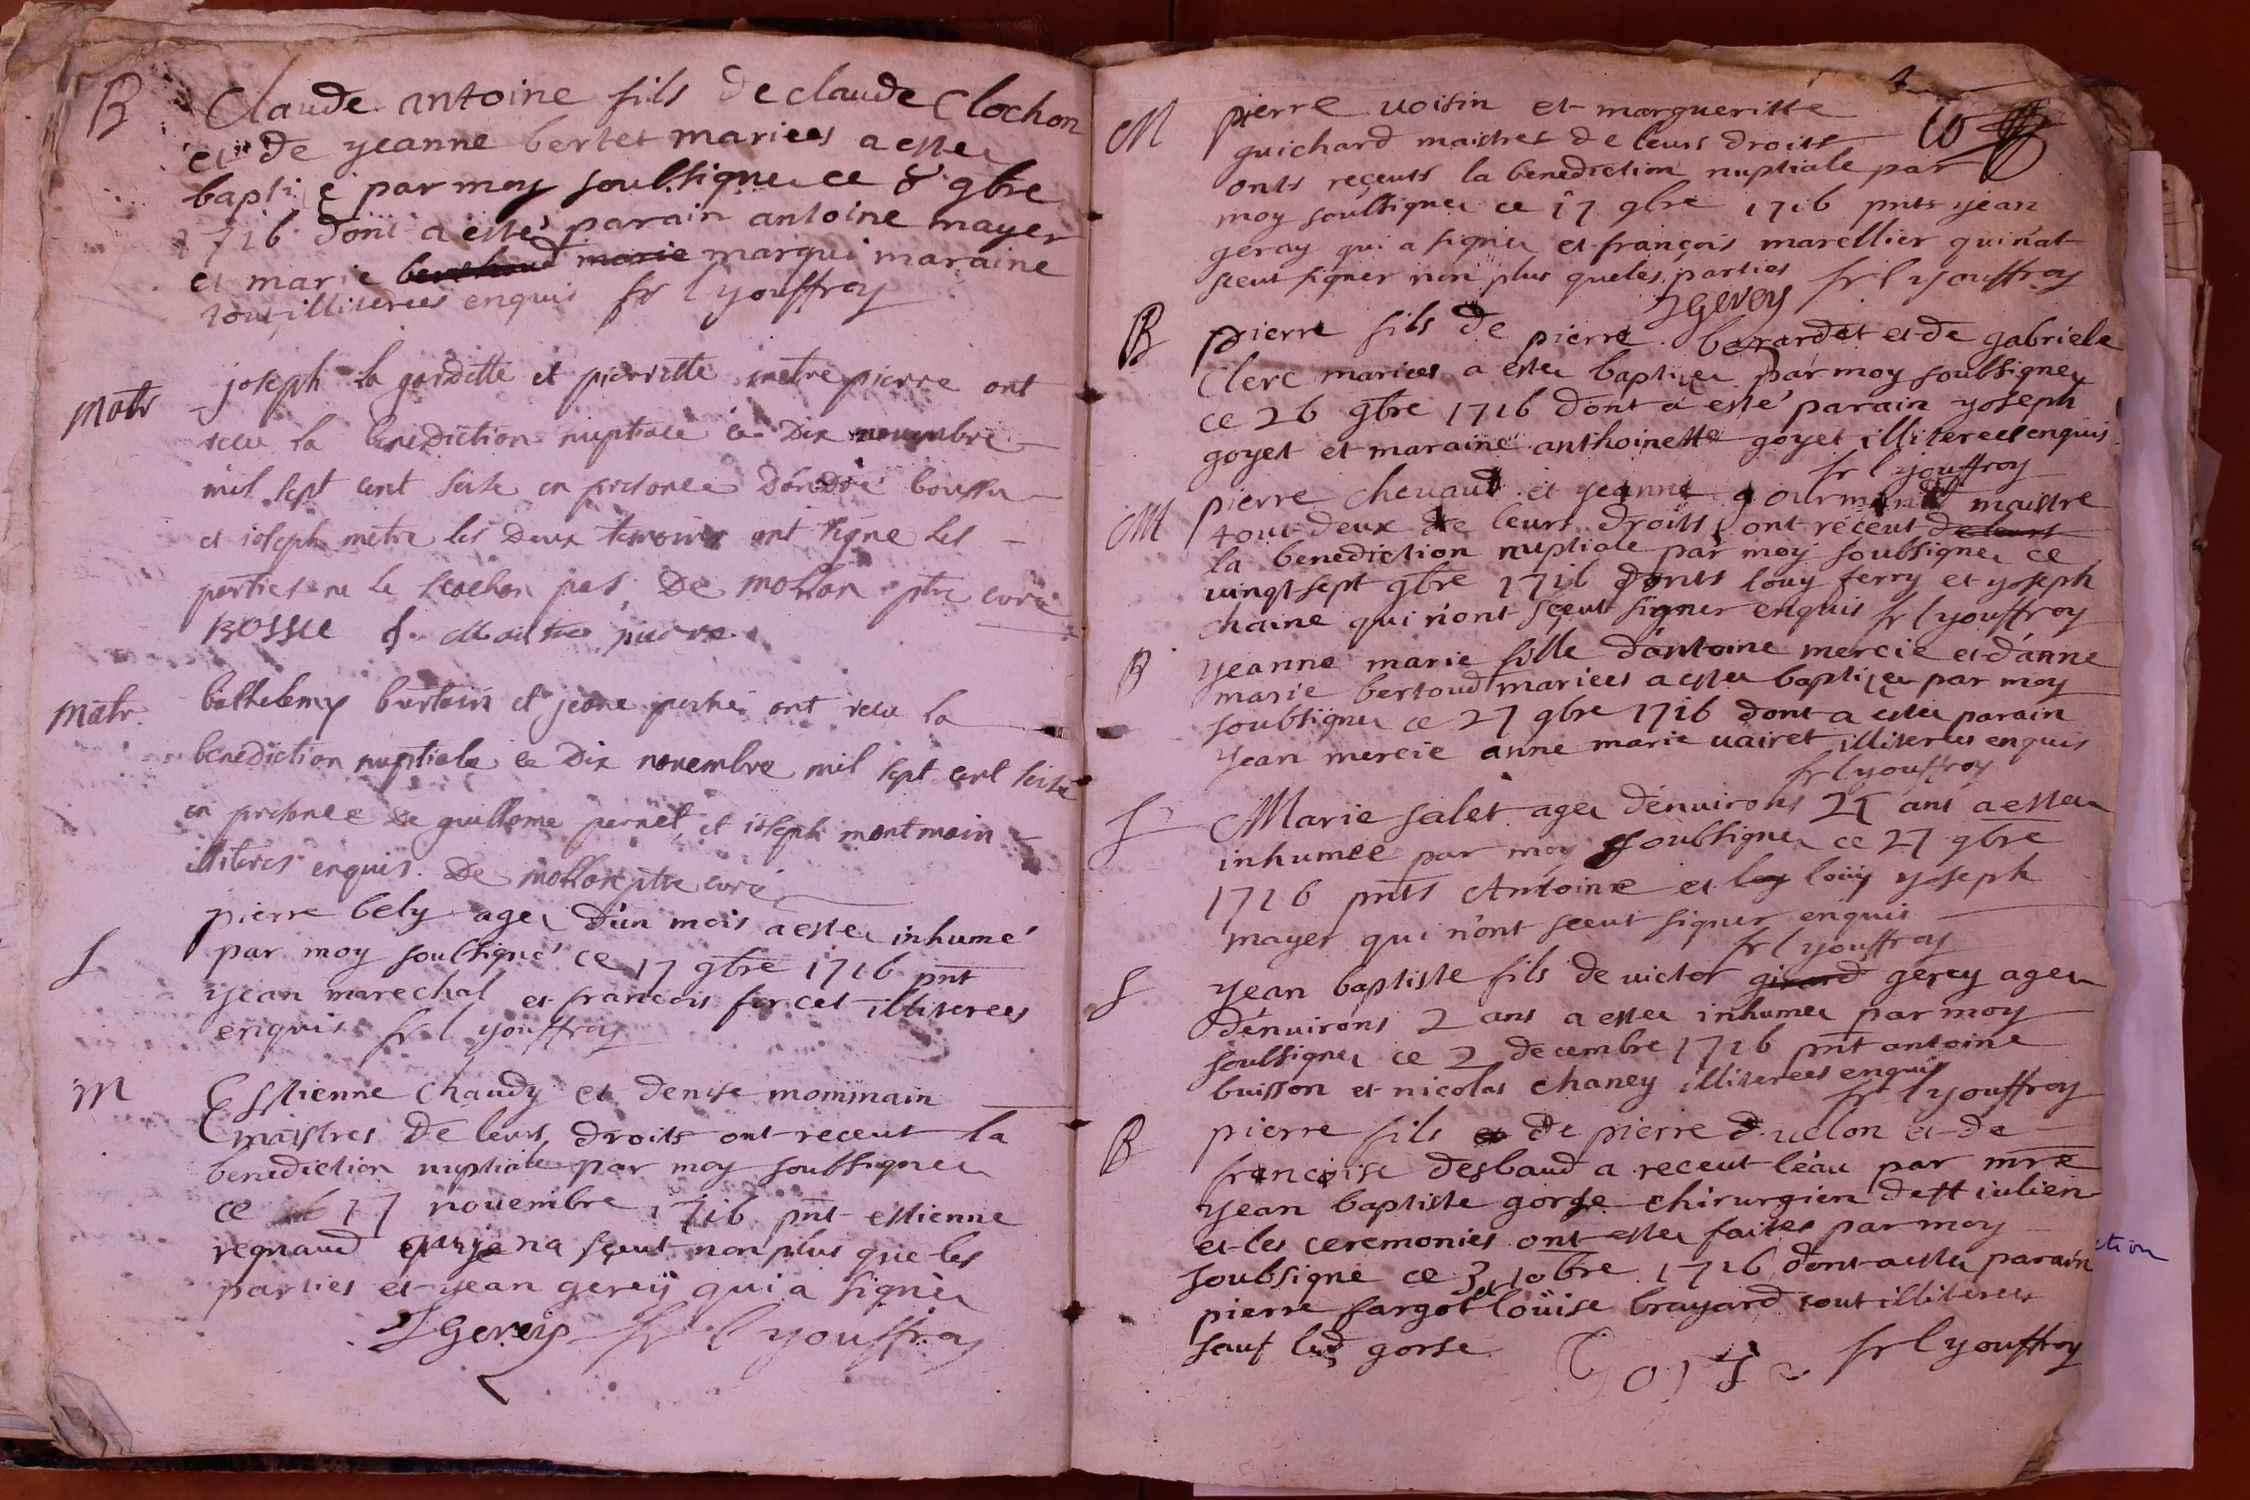 B Claude antoine fils de claude Clochon
et de yeanne bertet mariees a estez
par moy soubsignez ce 8 9bre
1716 dont a estez parain antoine mayer
et marie marie marqui maraine
tous illiterees enquis fr l youffroy
Matr joseph la gordette et pierrette metrepierre ont
receu la benediction nuptiale ce Dix novembre
mil sept cent seize en presence D'andre boussu
et ioseph metre les Deux temoins ont signe les
parties ne le scachan pas. De mollon ptre curé
BOSSU J. Maitre pierre
Matr. bathelemy bertoin et jeane ont receu la
benediction nuptiale ce Dix novembre mil sept cent seize
en presence de guillome pernet et ioseph montmain
illiteres enquis. De mollon ptre curé
S pierre bely agez d'un mois a estez inhumé
par moy soubsigné ce 17 9bre 1716 pnt
yean marechal et francois forcet illiterees
enquis fr l youffroy
M Estienne Chaudy et denise mominain
maistres de leurs droits ont receut la
benediction nuptiale par moy soubsignez
ce 17 novembre 1716 pnt estienne
regnaud qui na sceut non plus que les
parties et yean gereÿ qui a signéz
J Gerey fr l youffroy
2
10
M pierre uoisin et margueritte
guichard maistres de leurs droits
onts reçeuts la benediction nuptiale par
moy soubsignez ce 17 9bre 1716 pnts yean
geray qui a signez et françois marellier qui n'at
sceut signer non plus que les parties fr l youffroy
J Gerey
B pierre fils de pierre berardet et de gabriele
Clerc mariees a estez baptizez par moy soubsignez
ce 26 9bre 1716 dont a esté parain yoseph
goyet et maraine anthoinette goyet illiterees enquis
fr l youffroy
M pierre chevaud et yeanne gourmand maistre
tout deux de leurs droits ont receut de leurs
la benediction nuptiale par moy soubsignez ce
uingt sept 9bre 1716 pnts louy ferry et yoseph
chaine qui n'ont sçeut signer enquis fr l youffroy
B yeanne marie fille d'antoine mercie et d'anne
marie bertoud mariees a estez baptizez par moy
soubsignez ce 27 9bre 1716 dont a estez parain
yean mercie anne marie uairet illiterees enquis
fr l youffroy
S Marie salet agez d'enuirons 25 ans a estez
inhumee par moy soubsignez ce 27 9bre
1716 pnts Antoine et loy loüy yoseph
mayer qui n'ont sceut signer enquis
fr l youffroy
S yean baptiste fils de uictor girard gerey agez
d'enuirons 2 ans a estez inhumez par moy
soubsignez ce 2 decembre 1716 pnt antoine
buisson et nicolas chaney illiterees enquis
fr l youffroy
B pierre fils et de pierre duclon et de
françoise desbaud a receut l'eau par mre
yean baptiste gorse chirurgien de st iulien
et les ceremonies ont estez faites par moy
soubsigne ce 3 10bre 1716 dont a estez parain
pierre fargot et loüise brayard tout illiterees
sauf led gorse Gorse fr l youffroy
ction